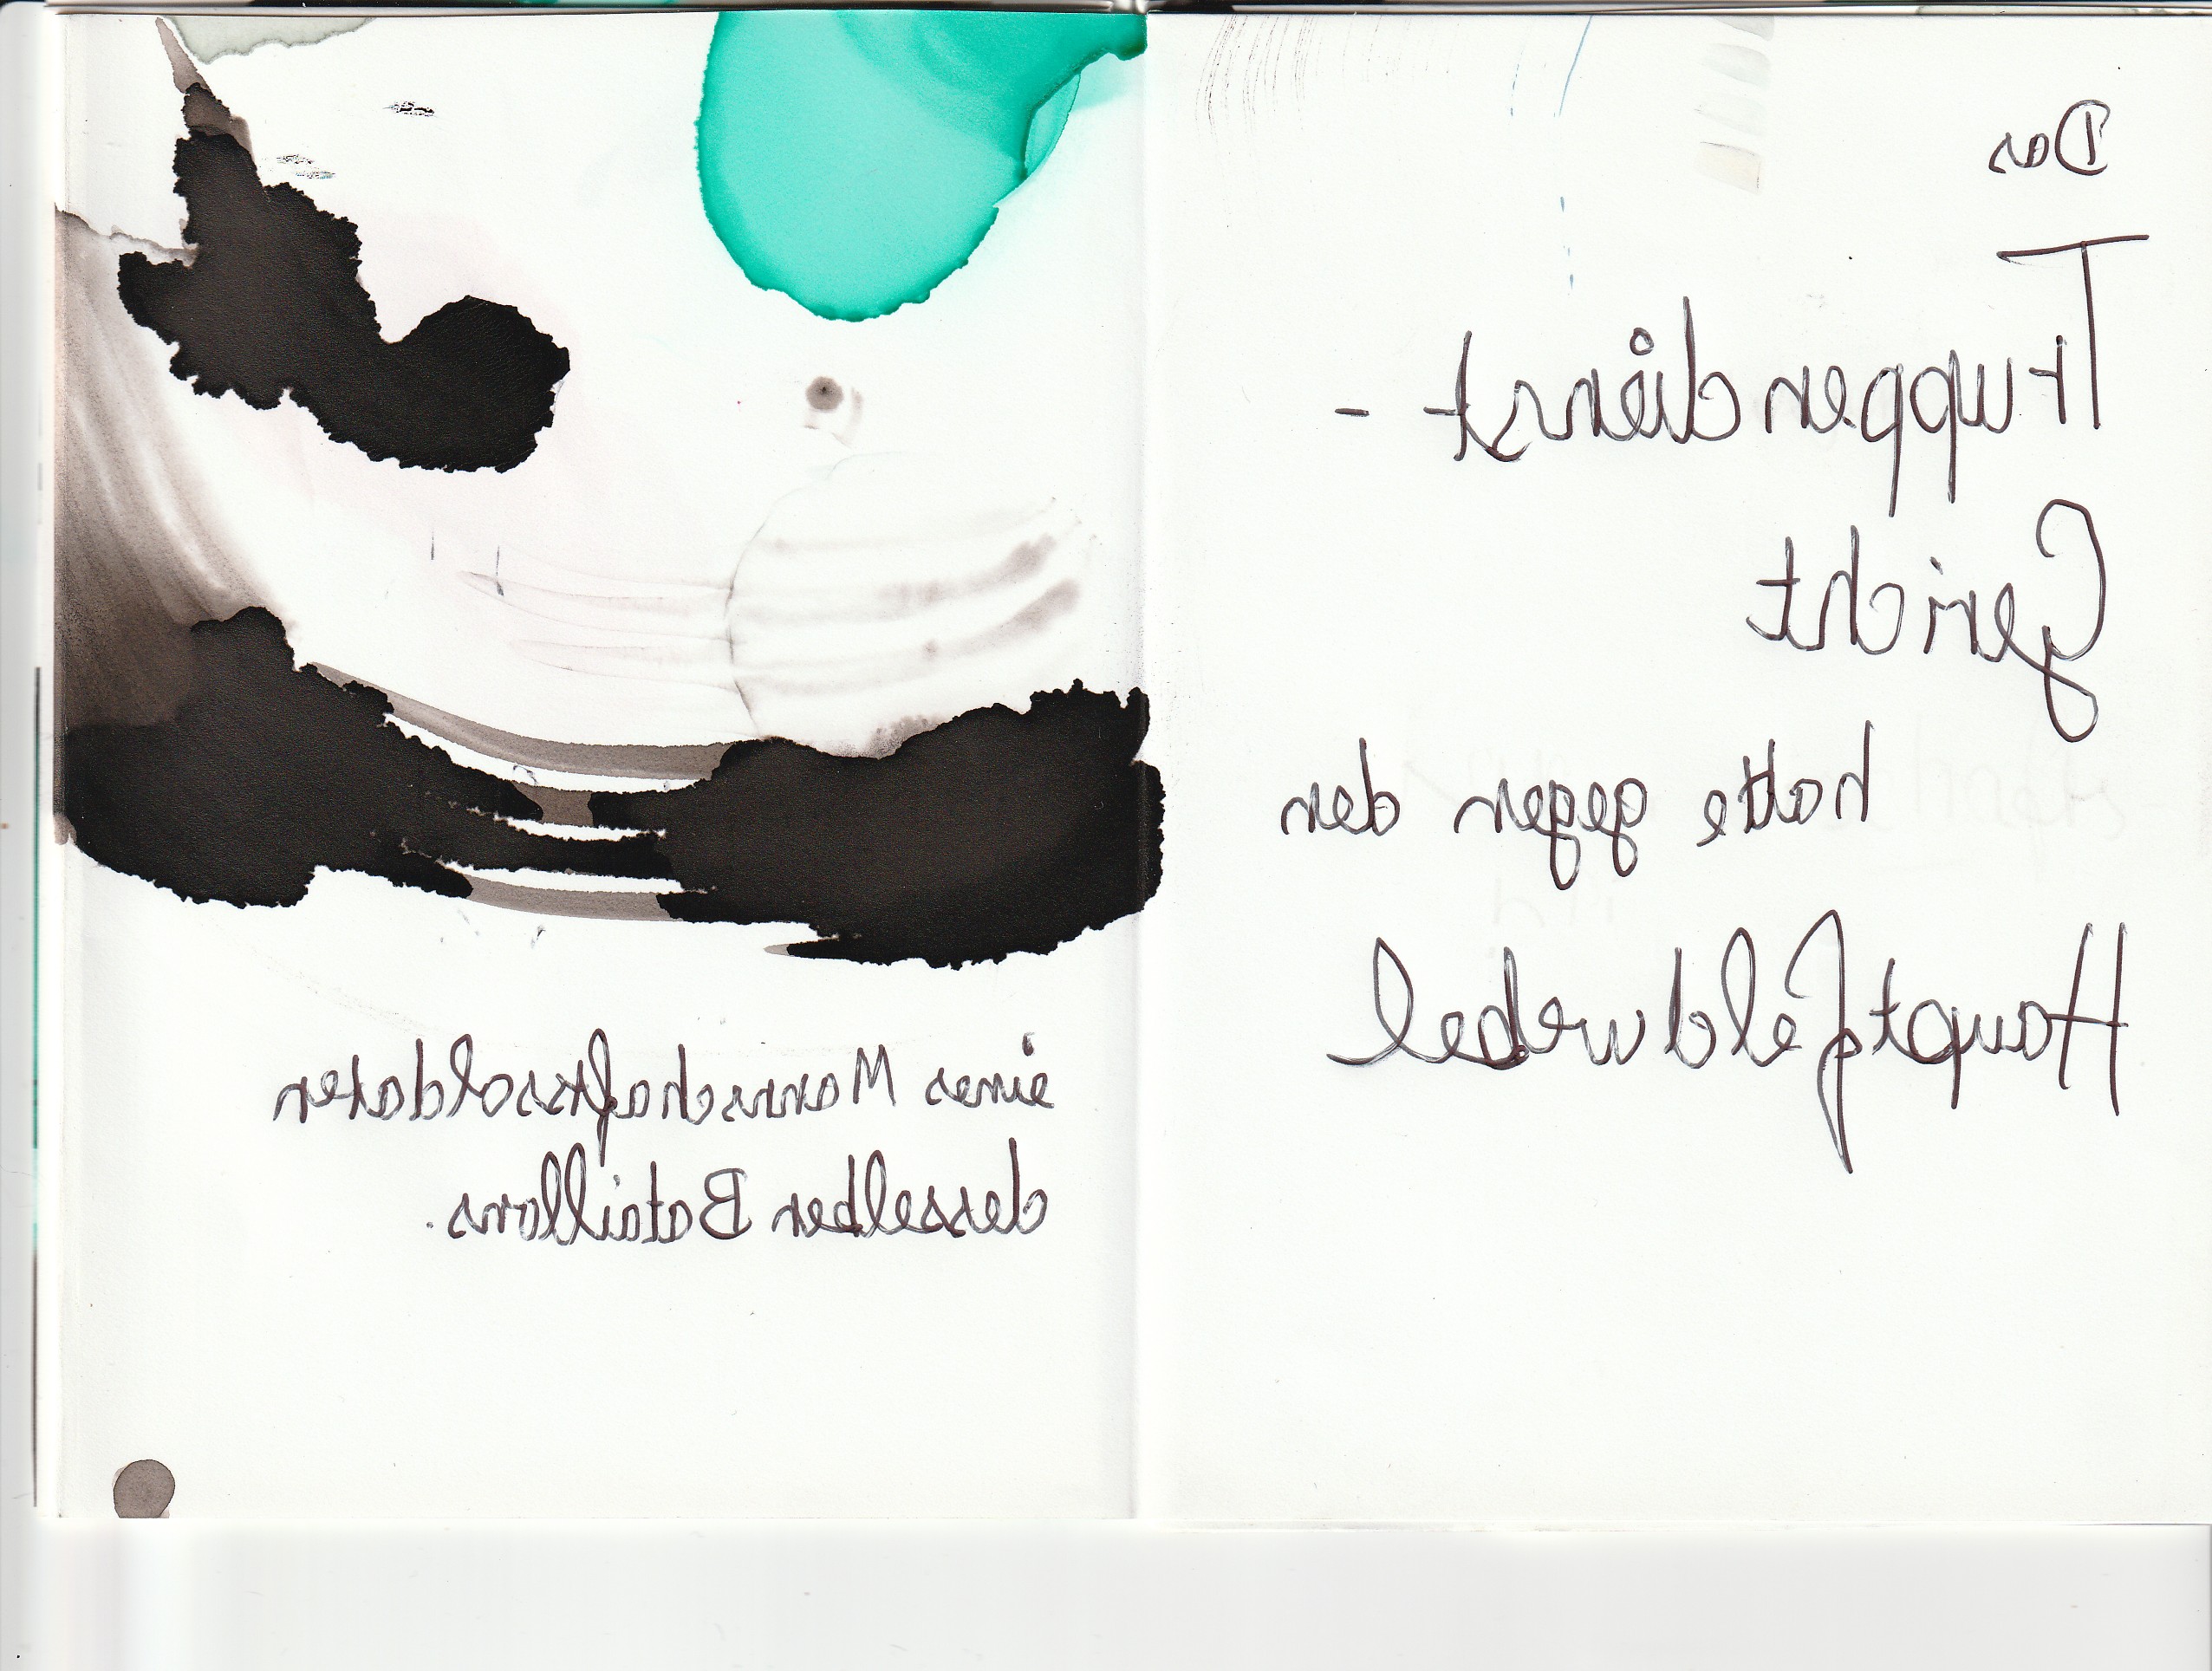 Das
Truppendienst-
Gericht
hatte gegen den
Hauptfeldwebel
eines Mannschaftssoldaten
desselben Bataillons.